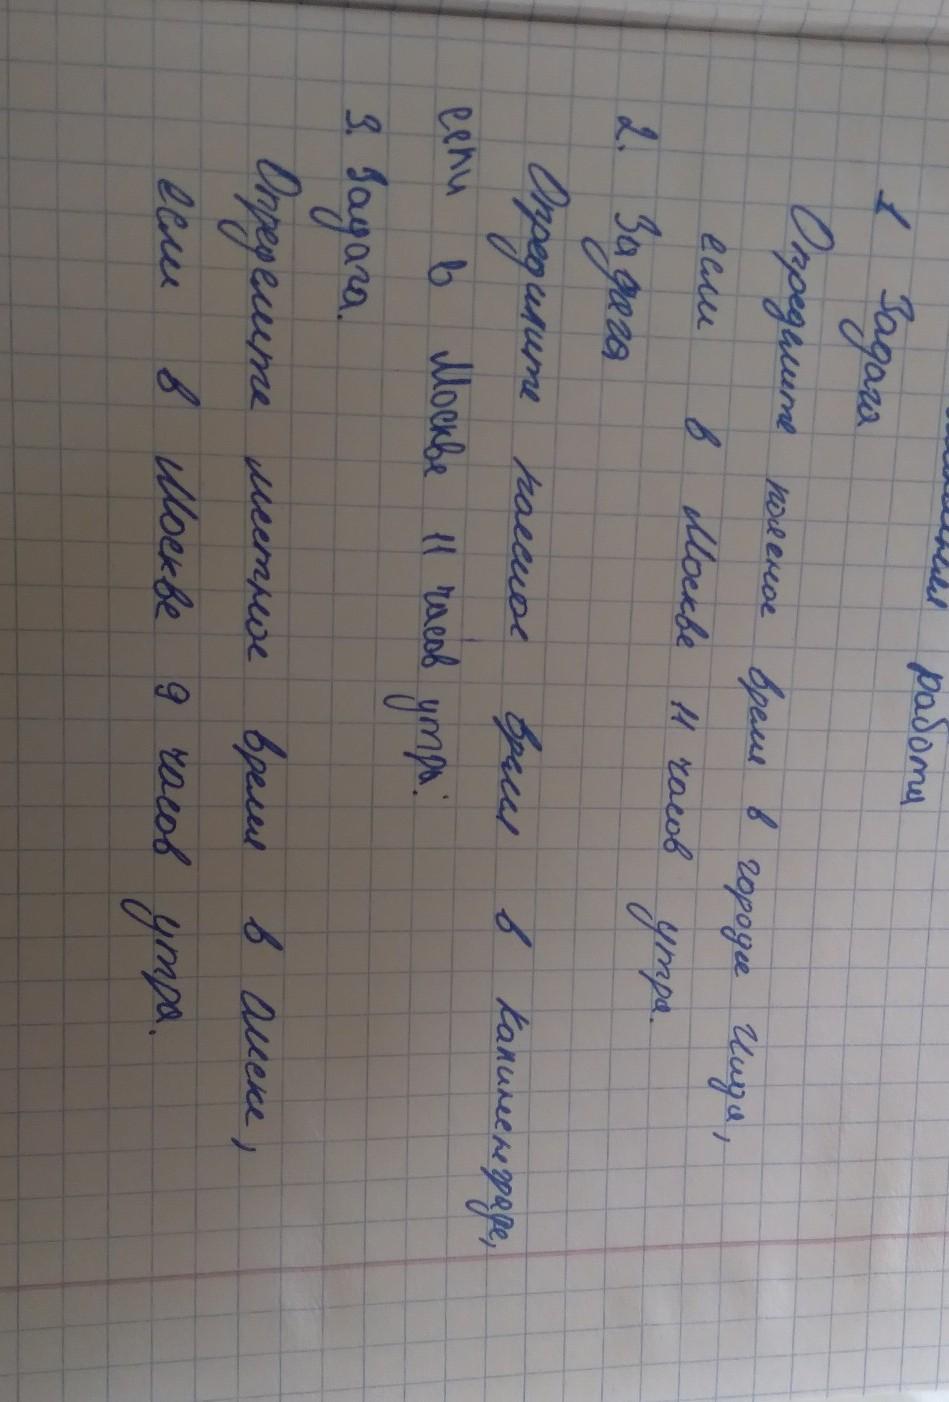 работы
1 Задача
Определите поясное время в городе Чида,
если в Москве 11 часов утра.
2. Задача
Определите поясное время в Калининграде,
если в Москве 11 часов утра.
3. Задача.
Определите местное время в Омске,
если в Москве 9 часов утра.